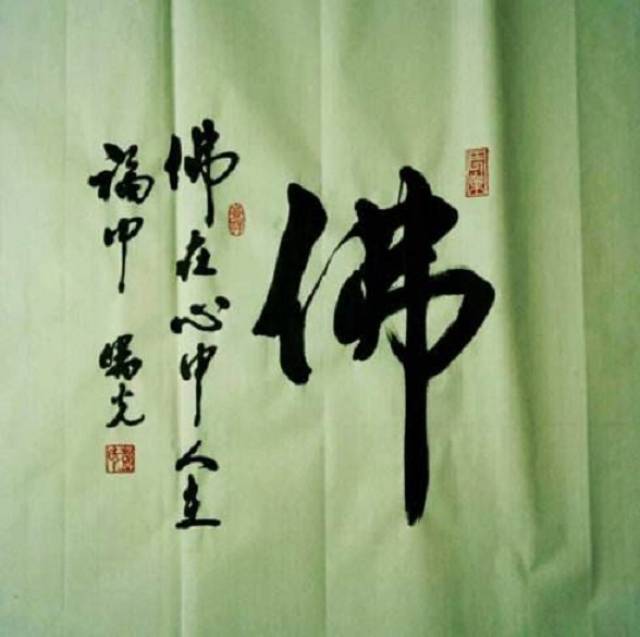 佛
佛在心中人在
福中 曙光